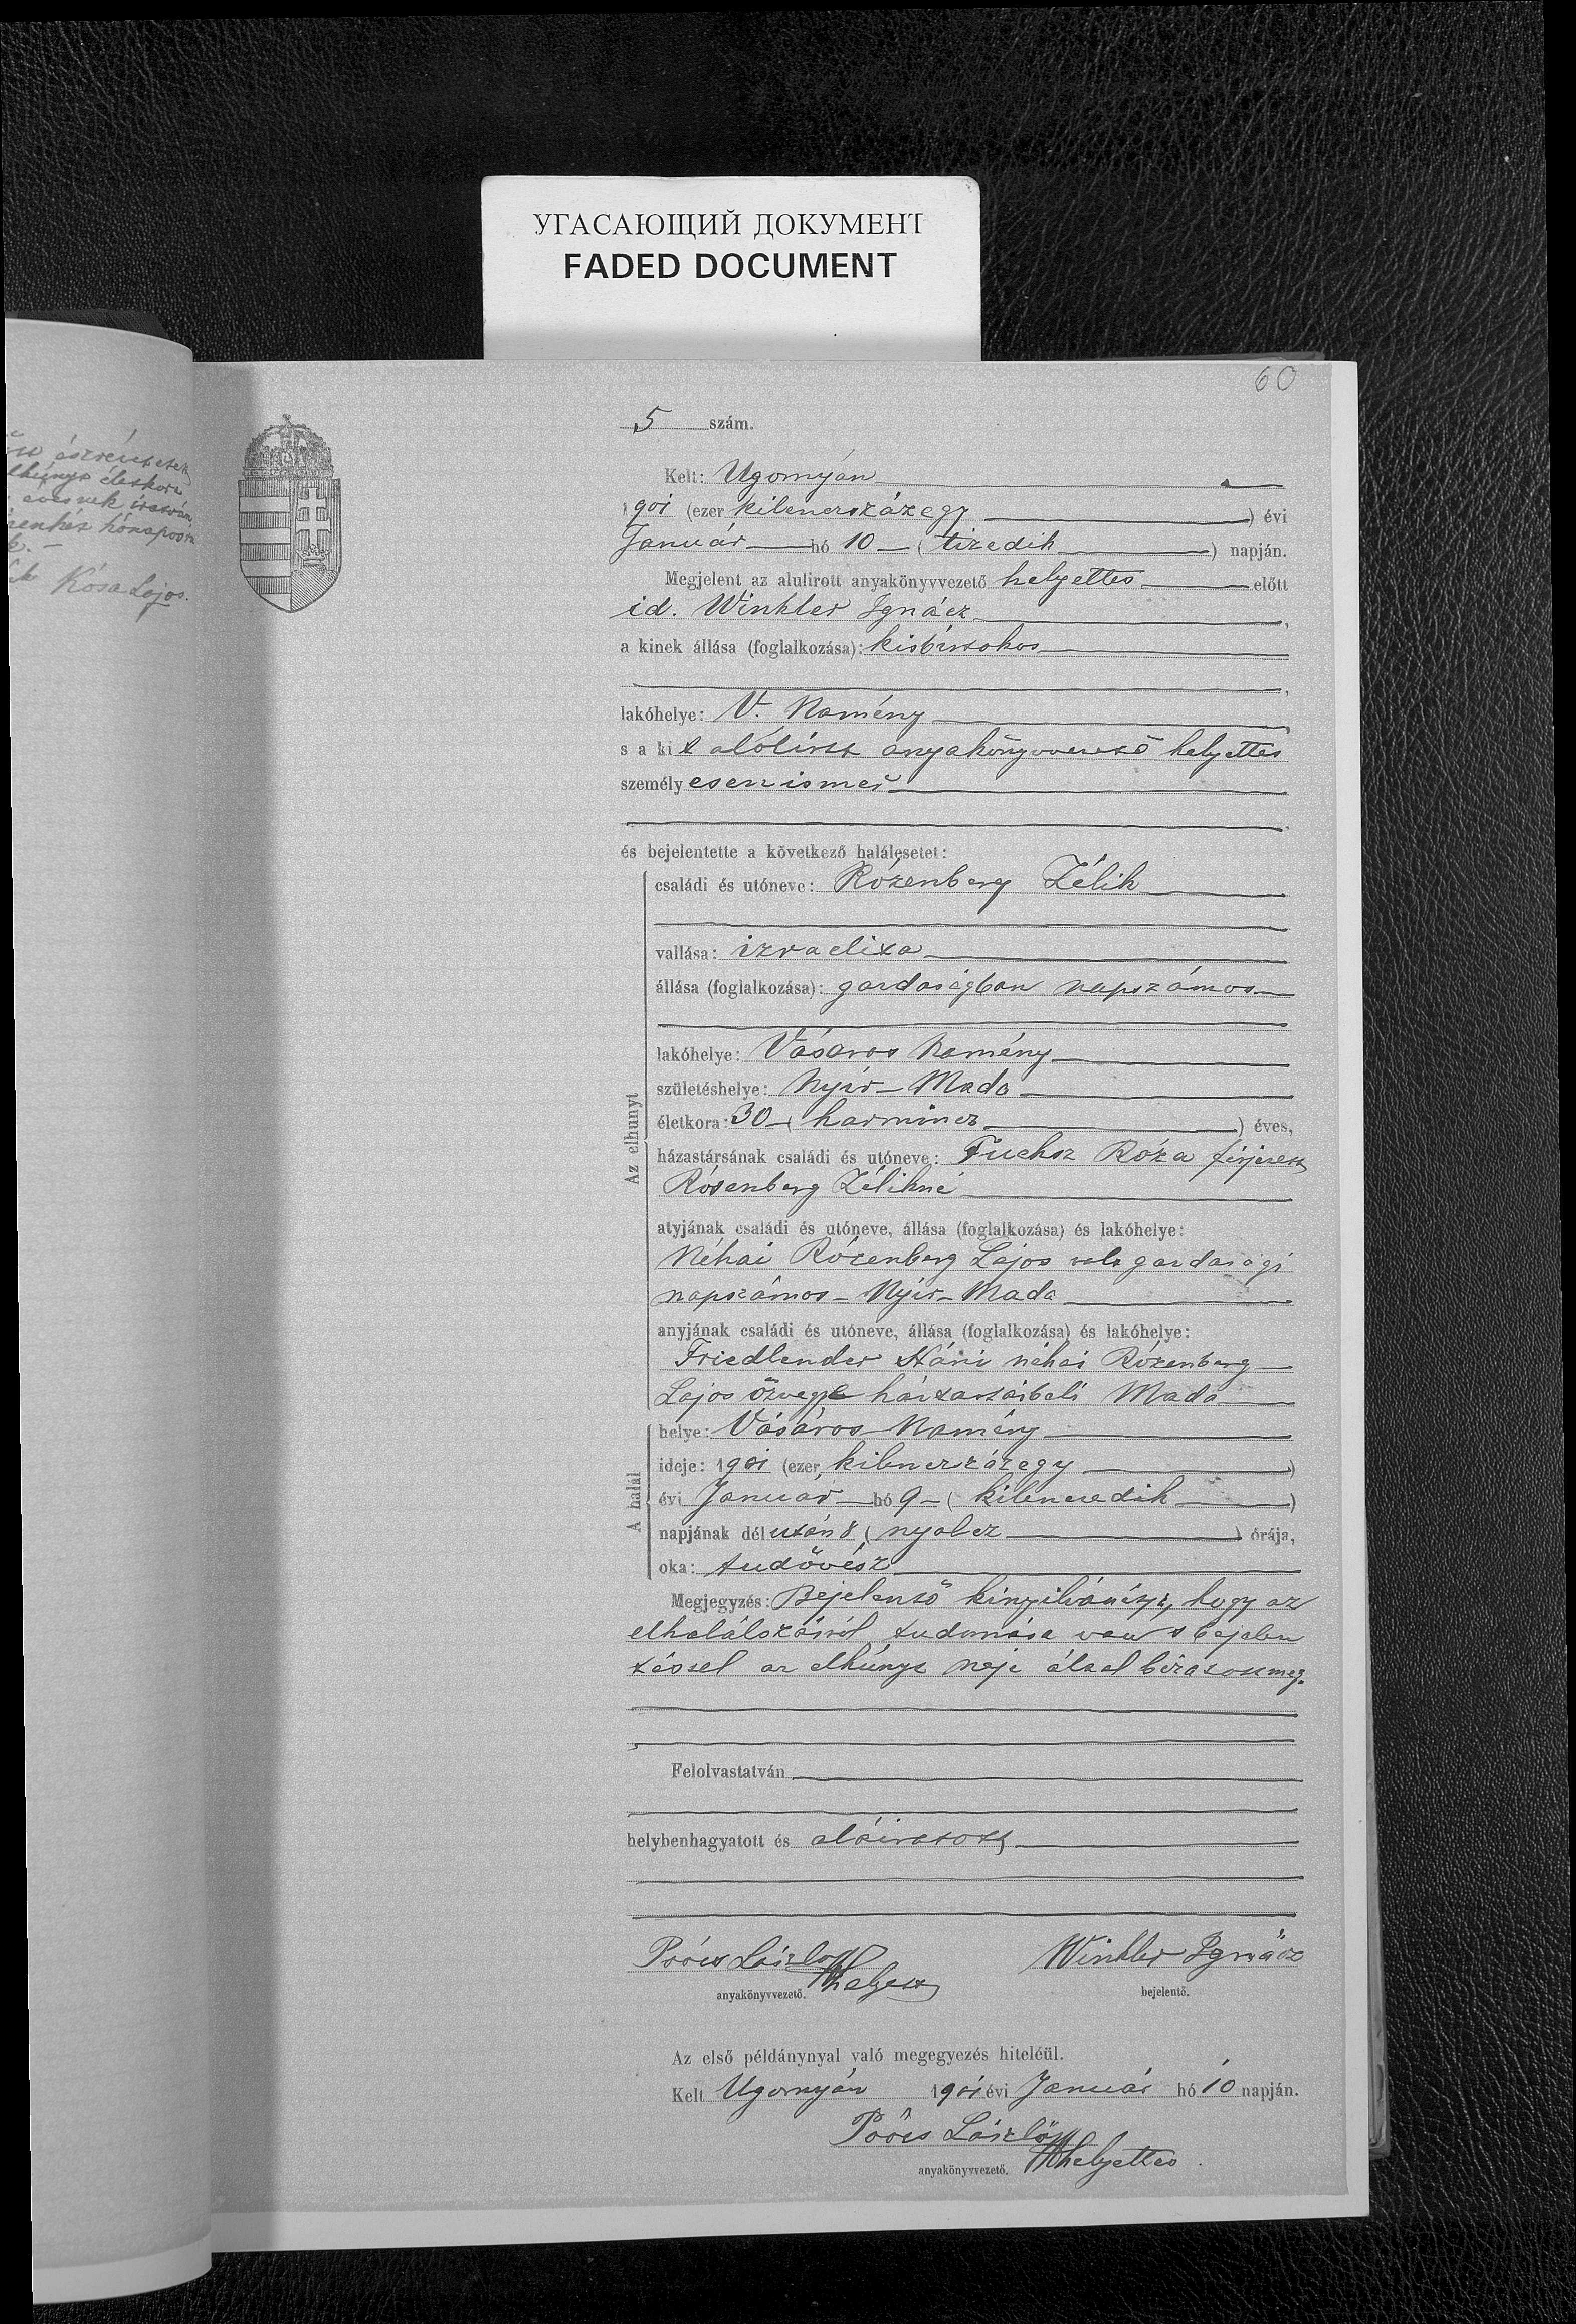 УГАСАЮЩИЙ ДОКУМЕНТ
FADED DOCUMENT
60
Kósa Lajos.
5 szám.
Kelt: Ugornyán
1901 (ezer kilenczszázegy) évi
Január hó 10 (tizedik) napján.
Megjelent az alulirott anyakönyvvezető helyettes előtt
id. Winkler Ignácz,
a kinek állása (foglalkozása): kisbirtokos
lakóhelye: V. Namény
s a kit alólirtt anyakönyvvezető helyettes
személyesen ismer
és bejelentette a következő halálesetet:
Az elhunyt
családi és utóneve: Rózenberg Zélik
vallása: izraelita
állása (foglalkozása): gazdaságban napszámos
lakóhelye: Vásáros Namény
születéshelye: Nyír-Mada
életkora: 30 (harmincz) éves,
házastársának családi és utóneve: Fuchsz Róza férjezett
Rósenberg Zélikné
atyjának családi és utóneve, állása (foglalkozása) és lakóhelye:
Néhai Rózenberg Lajos volt gazdasági
napszámos - Nyír-Mada
anyjának családi és utóneve, állása (foglalkozása) és lakóhelye:
Friedlender Háni néhai Rózenberg
Lajos özvegye háztartásbeli Mada
A halál
helye: Vásáros Namény
ideje: 1901 (ezer kilenczszázegy)
évi Január hó 9 (kilenczedik)
napjának délután 8 (nyolcz) órája,
oka: tudővész
Megjegyzés: Bejelentő kinyilvánítja, hogy az
elhalálozásról tudomása van s bejelen
téssel az elhúnyt neje által bízatott meg.
Felolvastatván
helybenhagyatott és aláiratott
Poócs László helyett
anyakönyvvezető.
Winkler Ignácz
bejelentő.
Az első példánynyal való megegyezés hiteléül.
Kelt Ugornyán 1901 évi Január hó 10 napján.
Poócs László helyettes
anyakönyvvezető.